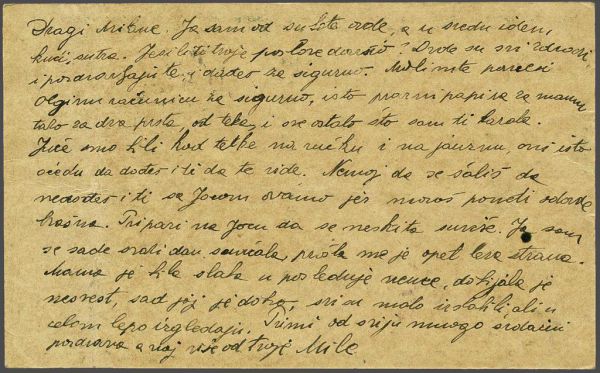 Dragi Milane. Ja sam od subote ovde, a u sredu idem
kući, sutra. Jesi li ti tvoje poslove dovršio? Ovde su svi zdravi
i pozdravljaju te, i dođeš za sigurno. Molim te poreći
Olginu računicu za sigurno, isto prazni papira za mamu
tako za dva prsta, od teke, i sve ostalo što sam ti kazala.
Juče smo bili kod tetke na ručku i na jauznu, oni isto
oćedu da dođeš i ti da te vide. Nemoj da se šališ da
nedođeš i ti sa Jocom ovamo jer moraš poneti odovde
brašna. Pripazi na Jocu da se neskita suviše. Ja sam
se sade svaki dan, prošla me je opet leva strana.
Mama je bila slaba u poslednje vreme, dobijala je
nesvest, sad joj je dobro, svi su malo oslabili, ali u
celom lepo izgledaju. Primi od sviju mnogo srdačni
pozdrava a naj više od tvoje Mile